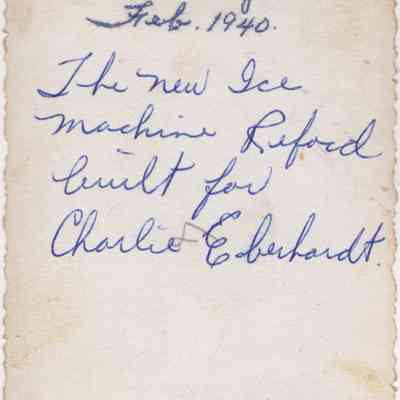 Feb. 1940.
The new Ice
machine Reford
built for
Charlie Eberhardt.